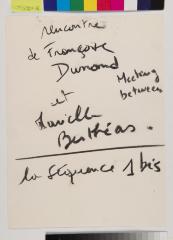 rencontre
de Françoise
Durand
Meeting
between
et
Mareille
Berthéas.
la Séquence 1 bis